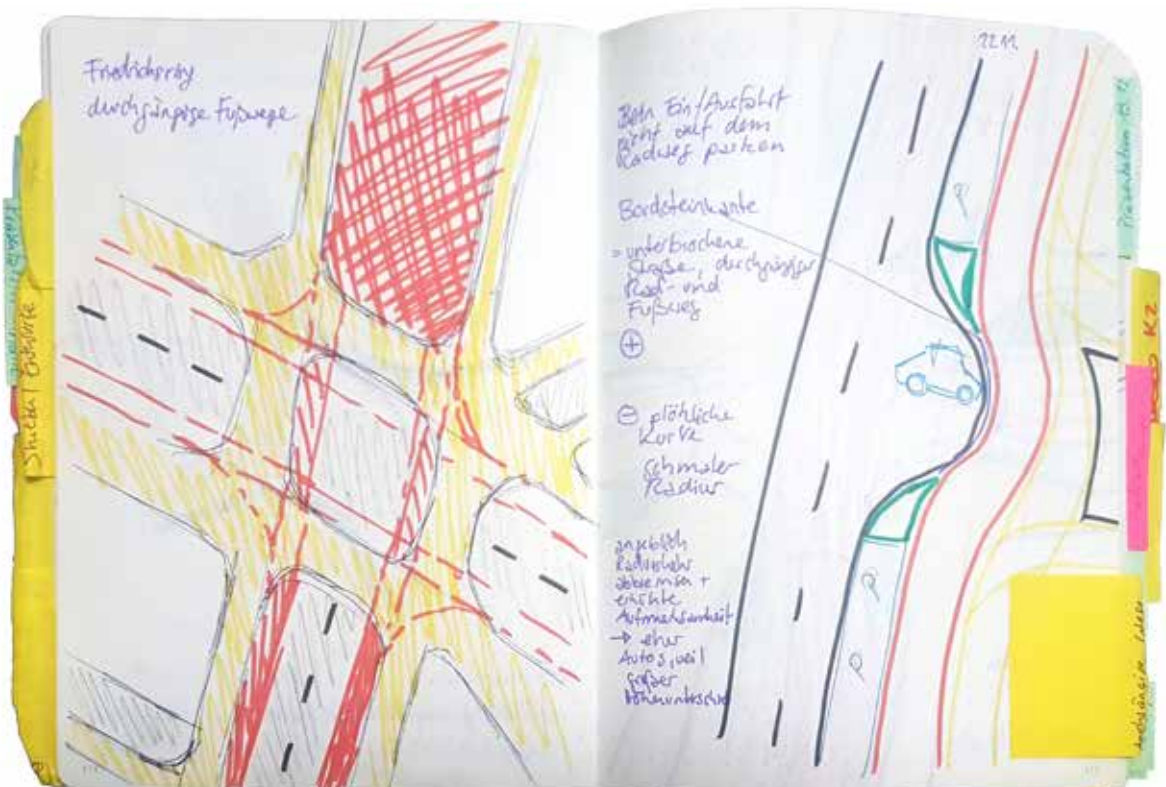 Friedrichsring
durchgängige Fußwege
22.11.
Beim Ein/Ausfahrt
nicht auf dem
Radweg parken
Bordsteinkante
= unterbrochene
Straße, durchgängiger
Rad- und
Fußweg
+
- plötzliche
Kurve
schmaler
Radius
angeblich
Radverkehr
abbremsen +
erhöhte
Aufmerksamkeit
→ eher
Autos, weil
großer
Höhenunterschied
Skizzen / Entwürfe
Präsentation
K2